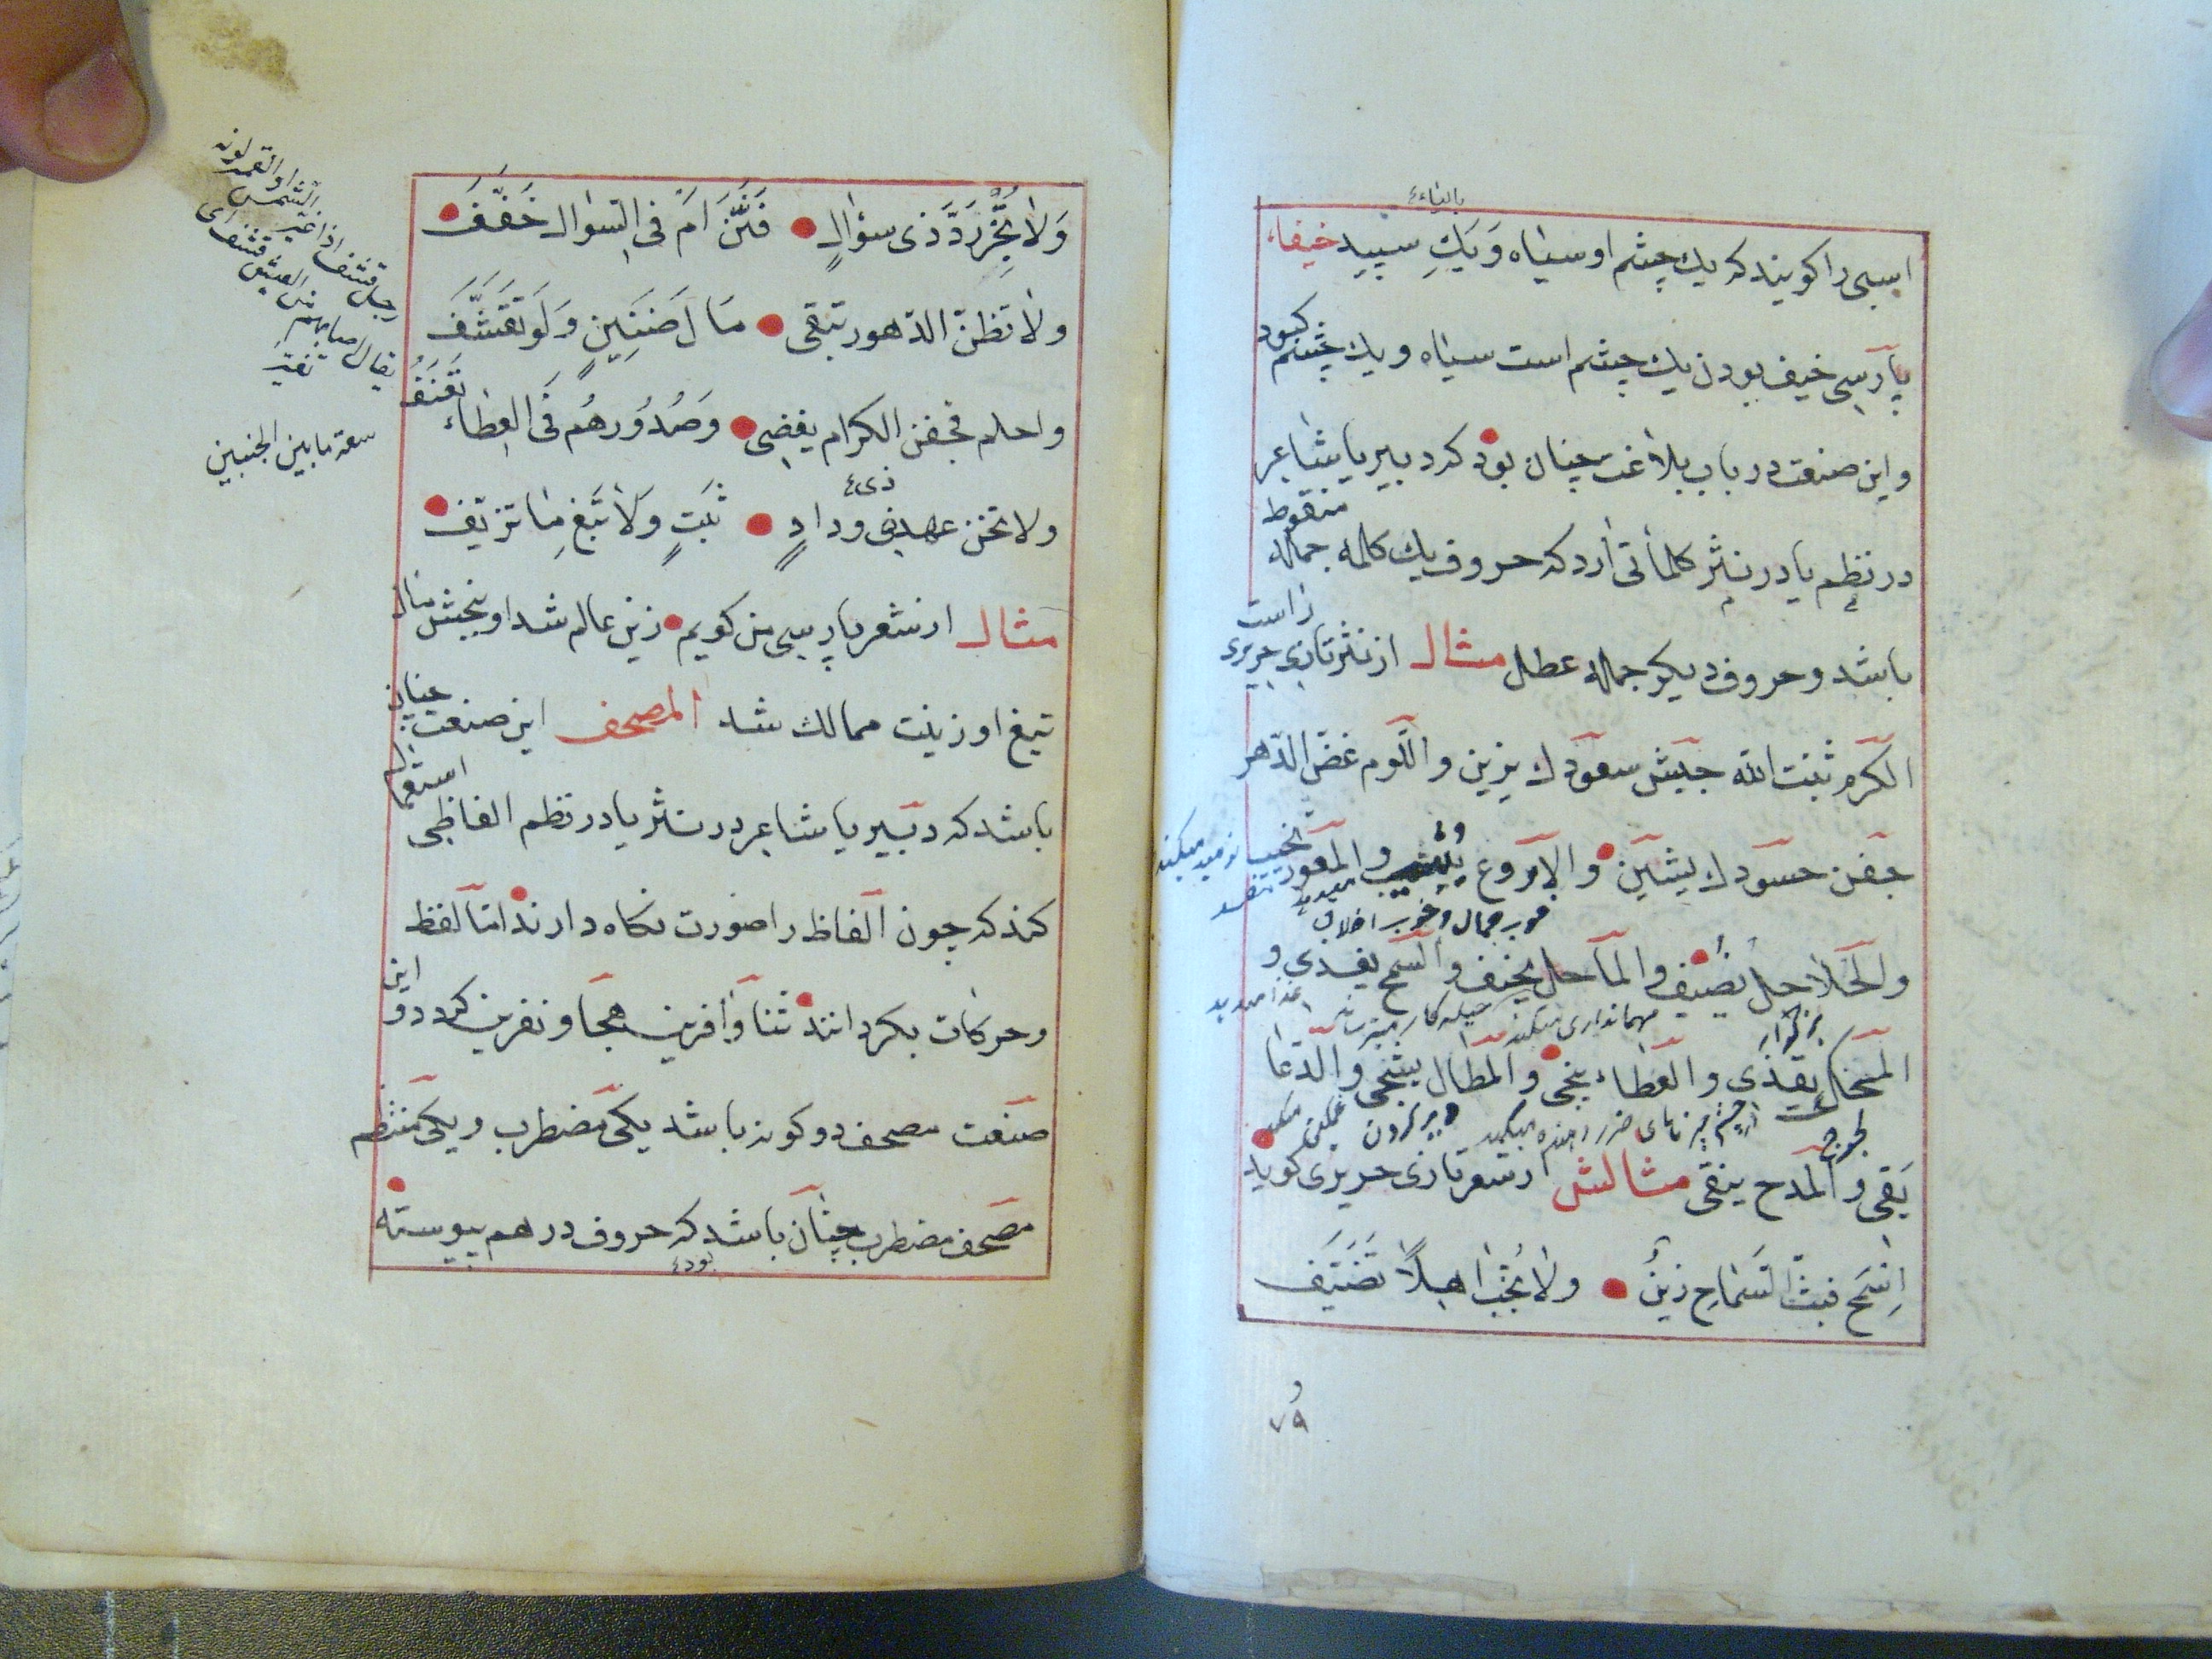 بالیاء
اسبی را کویند که یك چشم او سیاه وَ یَكِ سپید خیفاء
پارسی خیف بودن یك چشم است سیاه و یك چشم کبود
واین صنعت در باب بلاغت چنان بود که دبیر یا شاعر
در نظم یا در نثر کلماتی آرد که حروف یك کلمه جمله منقوط
باشد و حروف دیکر جمله عطل مثال از نثر تازی حریری راست
الکرم ثبت الله جیش سعودك یزین واللوم غض الدهر
جفن حسودك یشین والاروع یثیب والمعور یخیب
نومید میکند
خوب جمال و خوب اخلاق
والحلاحل یضیف والماحل یخیف والسمح یغذی و
مهمانداری میکند
المحك یقذی والعطاء ینجی والمطال یشجی والدعا
لجوج
یقی والمدح ینقی مثالش از شعر تازی حریری کوید
اِسْمَح فبثّ السَماحِ زینٌ ولا تُخِبْ اٰمِلًا تَضَیَّف
۷۹
وَلا تُجِزْ رَدَّ ذی سؤالٍ فَنَّنَ امْ فی السؤال خَفَّفَ
ولا تظنّ الدهور تبقی مَالَ ضَنینٍ وَلَو تَقَشَّفَ
واحلم فجفن الکرام یغضی وَصُدُورهُم فی العطاء نَفنَفُ
ذی
ولا تخن عهد ذی ودادٍ ثَبْتٍ وَلا تَبْغِ ما تزیّف
مثال از شعر پارسی من کویم زین عالم شد او ببخشش مال
تیغ او زینت ممالك شد المصحف این صنعت چنان
باشد که دبیر یا شاعر در نثر یا در نظم الفاظی استعمال
کند که چون الفاظ را صورت نکاه دارند اما لفظ
وحرکات بکردانند ثنا و آفرین هجا و نفرین کردد و این
صنعت مصحف دو کونه باشد یکی مضطرب و یکی منتظم
مصحف مضطرب چنان باشد که حروف در هم پیوسته
بود
الشمس او القمر لونه
رجل قشف اذا غیر
یقال اصابهم من العیش قشف ای
سعة ما بین الجنبین